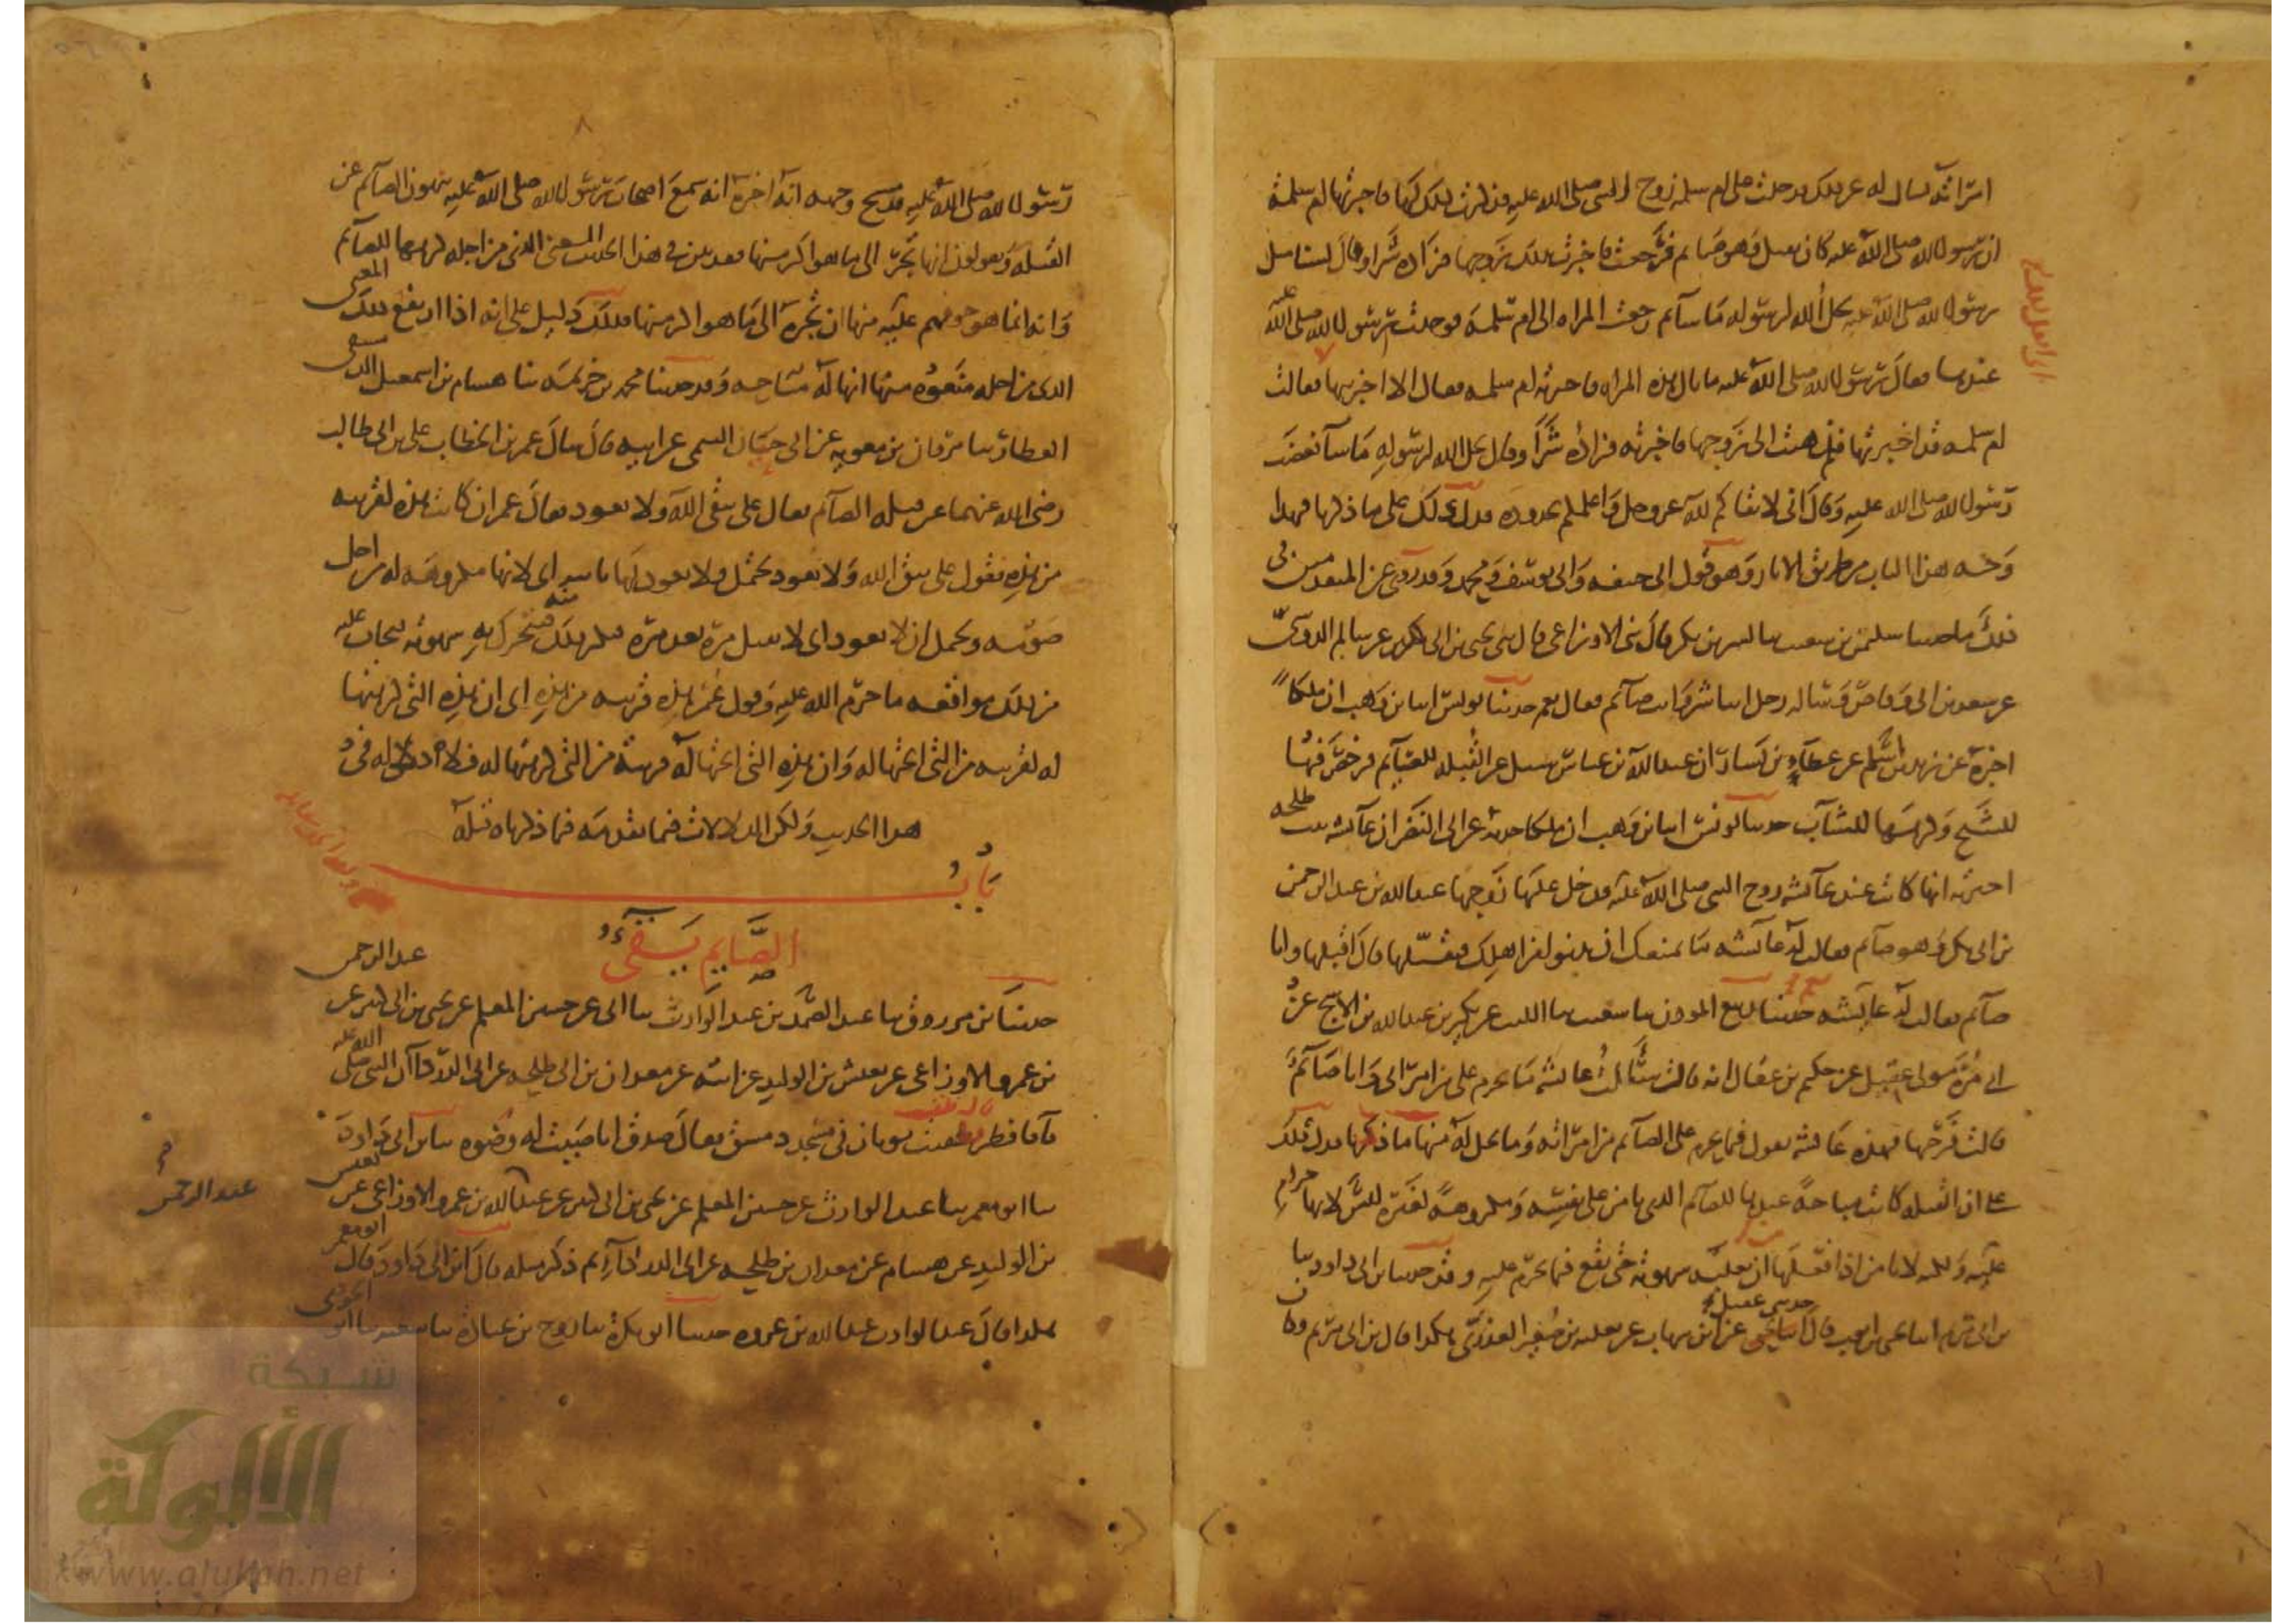 امراته تسال له عن ذلك فدخلت على ام سلمة زوج النبي صلى الله عليه فذكرت ذلك لها فاخبرتها ام سلمة
ان رسول الله صلى الله عليه كان يقبل وهو صائم فرجعت فاخبرت بذلك زوجها فزاده شرا وقال لسنا مثل
رسول الله صلى الله عليه يحل الله لرسوله ما شاء ثم رجعت المراه الى ام سلمة فوجدت رسول الله صلى الله عليه
عندها فقال رسول الله صلى الله عليه ما بال هذه المراه فاخبرته ام سلمه فقال الا اخبرتيها فقالت
ام سلمه قد اخبرتها فذهبت الى زوجها فاخبرته فزاده شرا وقال يحل الله لرسوله ما شاء فغضب
رسول الله صلى الله عليه وقال اني لاتقاكم لله عز وجل واعلمكم بحدوده فدل ذلك على ما ذكرنا فهذا
وجه هذا الباب من طريق الاثار وهو قول ابي حنيفه وابي يوسف ومحمد وقد روي عن المتقدمين في
ذلك ما حدثنا سليمن بن شعيب ثنا بشر بن بكر قال ثني الاوزاعي قال ثني يحيى بن ابي كثير عن سالم الدوسي
عن سعد بن ابي وقاص وساله رجل اتباشر وانت صائم فقال نعم حدثنا يونس انا بن وهب ان ملكا
اخبره عن زيد بن اسلم عن عطاء بن يسار ان عبد الله بن عباس سئل عن القبله للصائم فرخص فيها
للشيخ وكرهها للشاب حدثنا يونس انا بن وهب ان ملكا حدثه عن ابي النضر ان عائشه بنت طلحه
اخبرته انها كانت عند عائشه زوج النبي صلى الله عليه فدخل عليها زوجها عبد الله بن عبد الرحمن
بن ابي بكر وهو صائم فقالت له عائشه ما يمنعك ان تدنو من اهلك فتقبلها قال اقبلها وانا
صائم فقالت له عائشه نعم حدثنا ربيع الموذن ثنا شعيب ثنا الليث عن بكير بن عبد الله بن الاشج عن
ابي مرة مولى عقيل عن حكيم بن عقال انه قال سالت عائشة ما يحرم علي من امراتي وانا صائم
قالت فرجها فهذه عائشه تقول فيما يحرم على الصائم من امراته وما يحل له منها ما ذكرنا فدل ذلك
على ان القبله كانت مباحة عندها للصائم الذي يامن على نفسه ومكروهة لغيره ليس لانها حرام
عليه ولكنه لا يامن اذا فعلها ان تغلبه شهوته حتى يقع فيما يحرم عليه وقد حدثنا بن ابي داود ثنا
بن ابي مريم انا يحيى بن ايوب قال حدثني عقيل عن بن شهاب عن ثعلبه بن صعير العذري هكذا قال بن ابي مريم وكان
رسول الله صلى الله عليه قد مسح وجهه انه اخبره انه سمع اصحاب رسول الله صلى الله عليه ينهون الصائم عن
القبله ويقولون انها تجر الى ما هو اكبر منها فقد بين في هذا الحديث المعنى الذي من اجله كرهها للصائم
وانه انما هو خوفهم عليه منها ان تجره الى ما هو اكبر منها فذلك دليل على انه اذا ارتفع ذلك المعنى
الذي من اجله منعوه منها انها له مباحه وقد حدثنا محمد بن خزيمه ثنا هشام بن اسمعيل الدمشقي
العطار ثنا مروان بن معويه عن ابي حيان التيمي عن ابيه قال سال عمر بن الخطاب علي بن ابي طالب
رضي الله عنهما عن قبله الصائم فقال علي يتقي الله ولا يعود فقال عمر ان كانت هذه لقريبه
من هذه فقول علي يتق الله ولا يعود يحتمل ولا يعود لها ثانيه اي لانها مكروهه له من اجل
صومه ويحتمل ان لا يعود اي لا يقبل مرة بعد مره فيكثر ذلك منه فتتحرك به شهوته فيخاف عليه
من ذلك مواقعه ما حرم الله عليه وقول عمر هذه قريبه من هذه اي ان هذه التي كرهتها
له لقريبه من التي ابحتها له وان هذه التي ابحتها له قريبة من التي كرهتها له فلا دلاله في
هذا الحديث ولكن الدلالات فيما تقدمه مما ذكرناه قبله
باب
الصايم يقيء
حدثنا بن مرزوق ثنا عبد الصمد بن عبد الوارث ثنا ابي عن حسين المعلم عن يحيى بن ابي كثير عن عبد الرحمن
بن عمرو الاوزاعي عن يعيش بن الوليد عن ابيه عن معدان بن ابي طلحه عن ابي الدرداء ان النبي صلى الله عليه
قاء فافطر قال فلقيت ثوبان في مسجد دمشق فقال صدق انا صببت له وضوءه ثنا بن ابي داود
ثنا ابو معمر ثنا عبد الوارث عن حسين المعلم عن يحيى بن ابي كثير عن عبد الله بن عمرو الاوزاعي عن يعيش
عبد الرحمن
بن الوليد عن هشام عن معدان بن طلحه عن ابي الدرداء ثم ذكر مثله قال بن ابي داود قال ابو معمر
هكذا قال عبد الوارث عبد الله بن عمرو حدثنا ابو بكرة ثنا روح بن عبادة ثنا شعبه ثنا ابو الجودي
شبكة
الألوكة
www.alukah.net